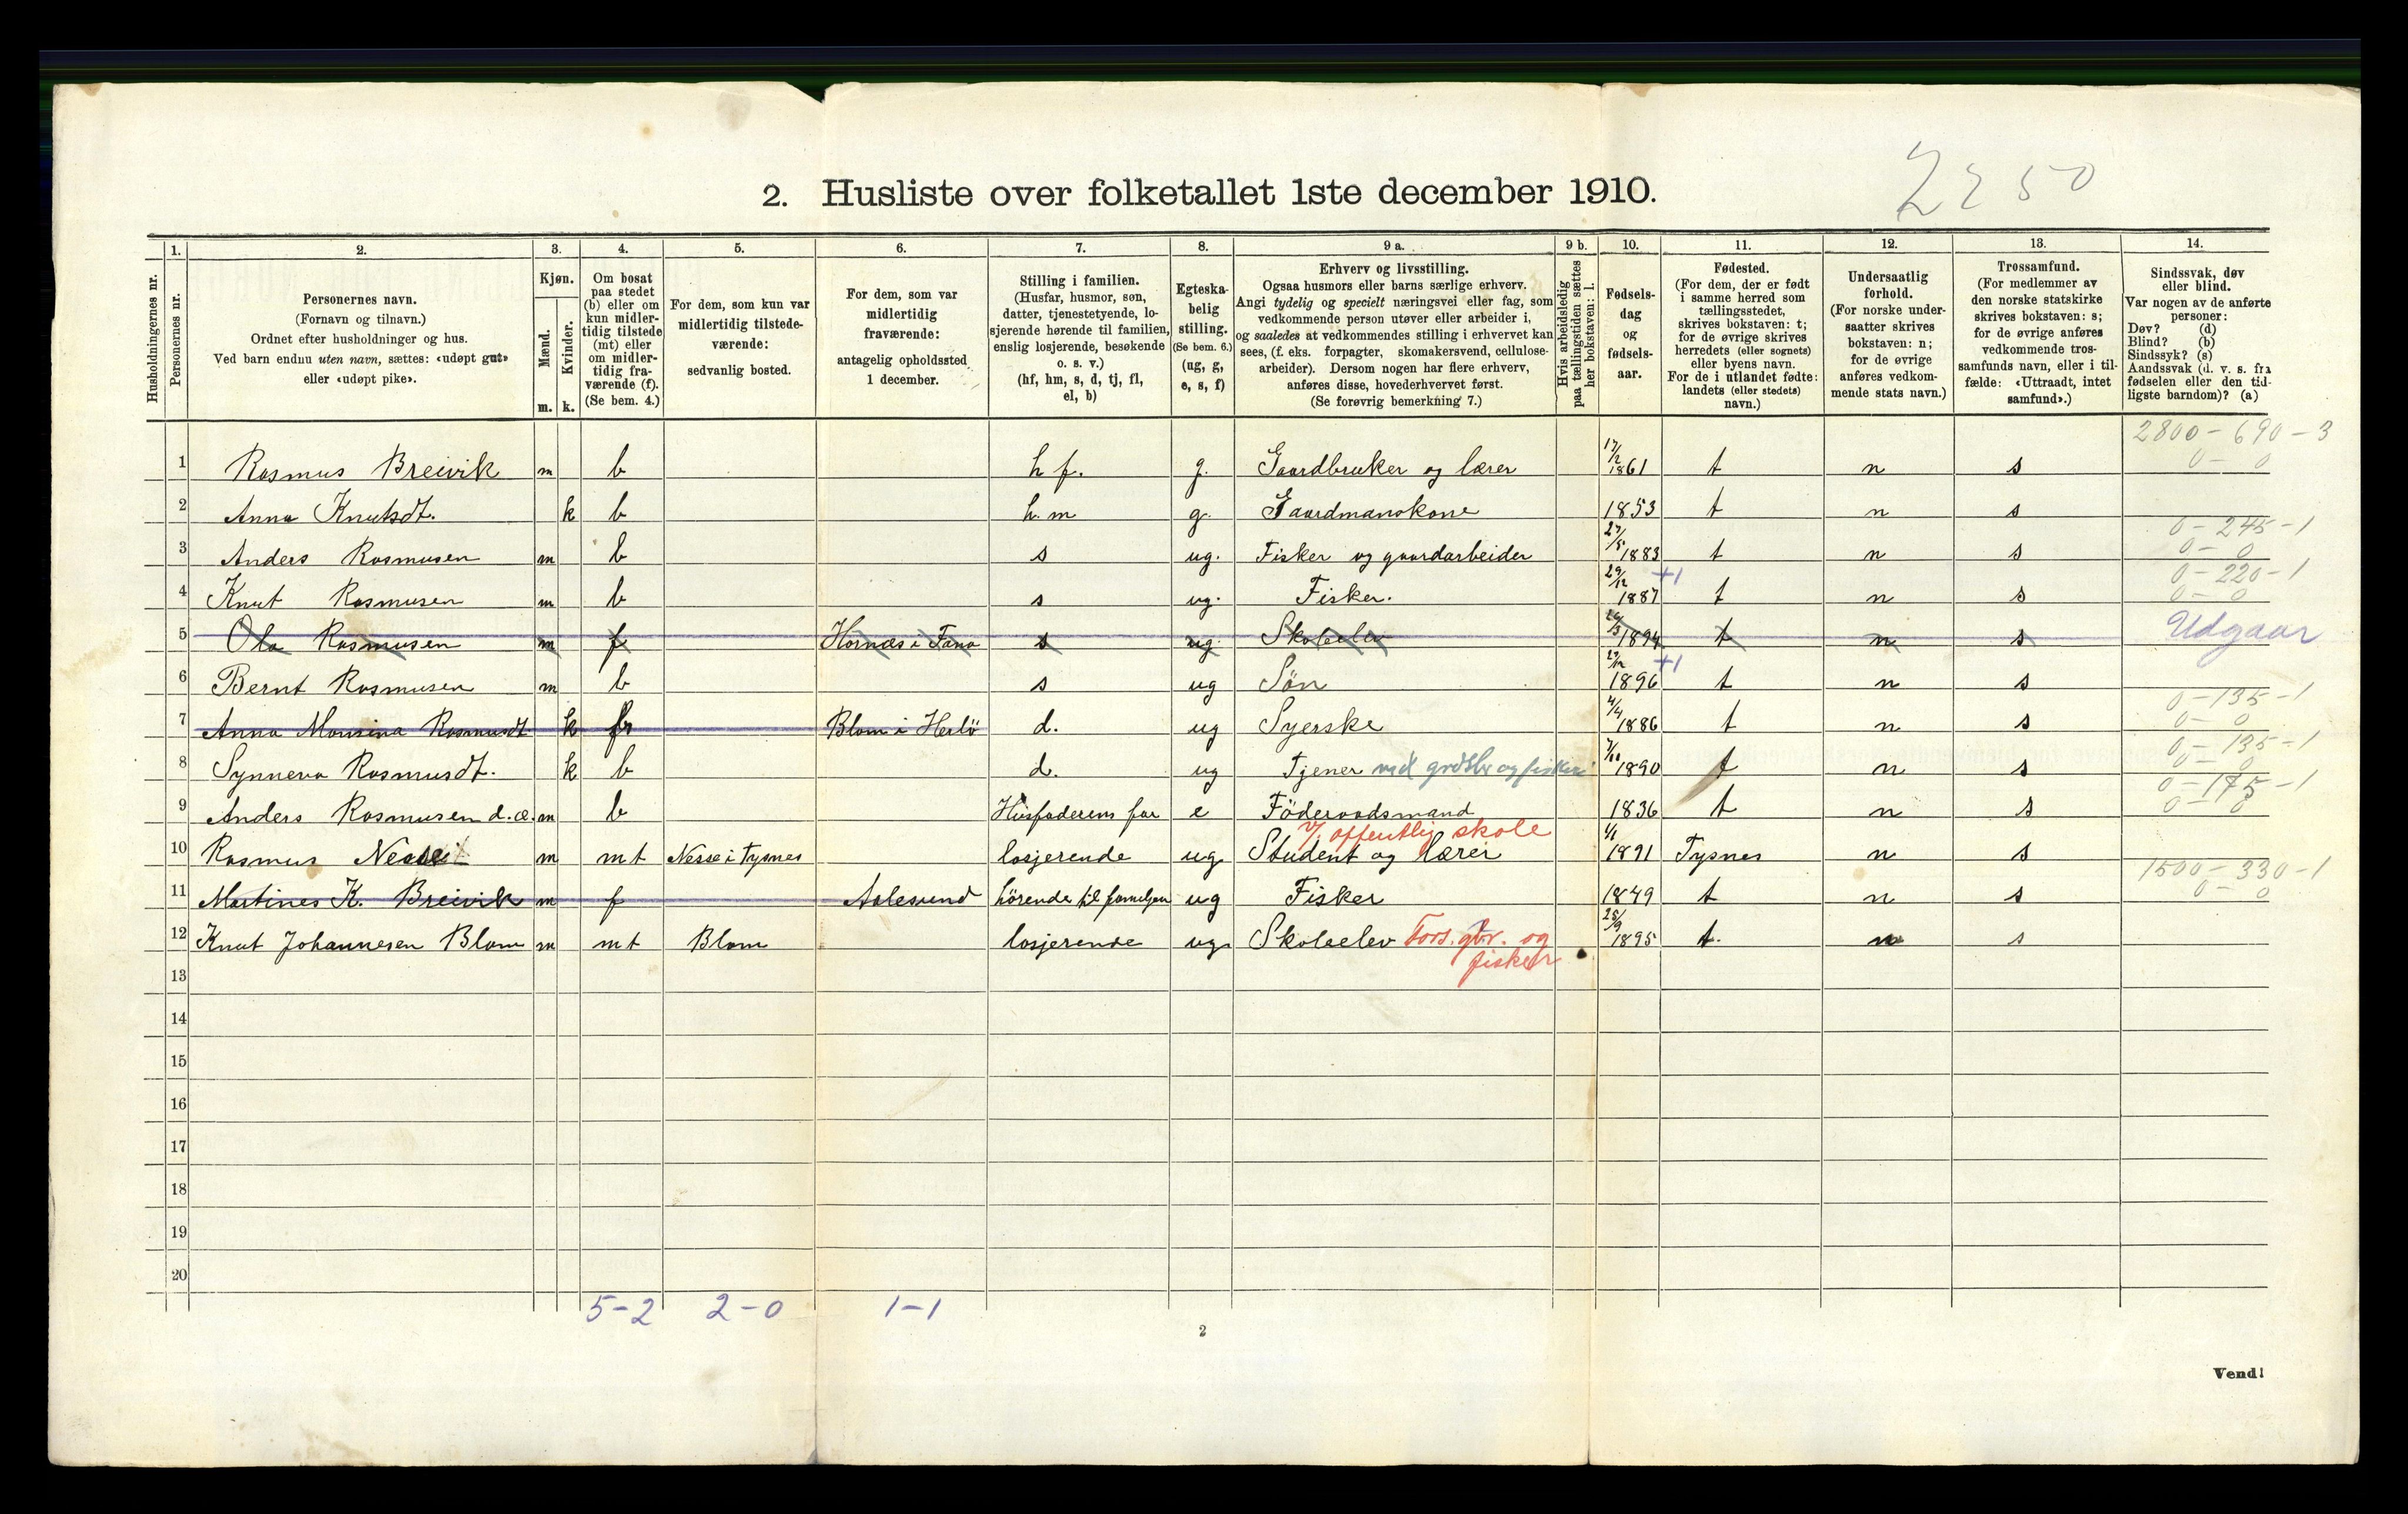 2250
2. Husliste over folketallet 1ste december 1910.
Husholdningernes nr.
1. Personernes nr.
2. Personernes navn. (Fornavn og tilnavn.) Ordnet efter husholdninger og hus. Ved barn endnu uten navn, sættes: «udøpt gut» eller «udøpt pike».
3. Kjøn. Mænd. Kvinder. m. k.
4. Om bosat paa stedet (b) eller om kun midler-tidig tilstede (mt) eller om midler-tidig fra-værende (f). (Se bem. 4.)
5. For dem, som kun var midlertidig tilstede-værende: sedvanlig bosted.
6. For dem, som var midlertidig fraværende: antagelig opholdssted 1 december.
7. Stilling i familien. (Husfar, husmor, søn, datter, tjenestetyende, lo-sjerende hørende til familien, enslig losjerende, besøkende o. s. v.) (hf, hm, s, d, tj, fl, el, b)
8. Egteska-belig stilling. (Se bem. 6.) (ug, g, e, s, f)
9 a. Erhverv og livsstilling. Ogsaa husmors eller barns særlige erhverv. Angi tydelig og specielt næringsvei eller fag, som vedkommende person utøver eller arbeider i, og saaledes at vedkommendes stilling i erhvervet kan sees, (f. eks. forpagter, skomakersvend, cellulose-arbeider). Dersom nogen har flere erhverv, anføres disse, hovederhvervet først. (Se forøvrig bemerkning 7.)
9 b. Hvis arbeidsledig paa tællingstiden sættes her bokstaven: l.
10. Fødsels-dag og fødsels-aar.
11. Fødested. (For dem, der er født i samme herred som tællingsstedet, skrives bokstaven: t; for de øvrige skrives herredets (eller sognets) eller byens navn. For de i utlandet fødte: landets (eller stedets) navn.)
12. Undersaatlig forhold. (For norske under-saatter skrives bokstaven: n; for de øvrige anføres vedkom-mende stats navn.)
13. Trossamfund. (For medlemmer av den norske statskirke skrives bokstaven: s; for de øvrige anføres vedkommende tros-samfunds navn, eller i til-fælde: «Uttraadt, intet samfund».)
14. Sindssvak, døv eller blind. Var nogen av de anførte personer: Døv? (d) Blind? (b) Sindssyk? (s) Aandssvak (d. v. s. fra fødselen eller den tid-ligste barndom)? (a)
2800-690-3
1 Rasmus Breivik m b h f. g. Gaardbruker og lærer 17/12 1861 t n s 0-0
2 Anna Knutsdt. k b h. m g. Gaardmanskone 1853 t n s
0-245-1
3 Anders Rasmusen m b s ug. Fisker og gaardarbeider 27/5 1883 t n s 0-0
+1 0-220-1
4 Knut Rasmusen m b s ug. Fisker. 29/12 1887 t n s 0-0
5 Ola Rasmusen m f Hornæs i Fana s ug Skoleelev 1894 t n s Udgaar
+1
6 Bernt Rasmusen m b s ug Søn 1896 t n s
0-135-1
7 Anna Monsina Rasmusdt k f Blom i Herlö d. ug Syerske 4/4 1886 t n s 0-0
0-135-1
8 Synneva Rasmusdt. k b d. ug Tjener ved grdsbr og fiskeri 1890 t n s 0-0
0-175-1
9 Anders Rasmusen d. æ. m b Husfaderens far e Föderaadsmand 1836 t n s 0-0
v/ offentlig skole
10 Rasmus m mt Nesse i Tysnes losjerende ug. Student og lærer 1/1 1891 Tysnes n s
1500-330-1
11 Martines K. Breivik m f Aalesund hörende til familjen ug Fisker 1849 t n s 0-0
12 Knut Johannesen Blom m mt Blom losjerende ug. Skoleelev Fors. gbr. og 25/9 1895 t. n s
fisker
13
14
15
16
17
18
19
20
5-2 2-0 1-1
2
Vend!